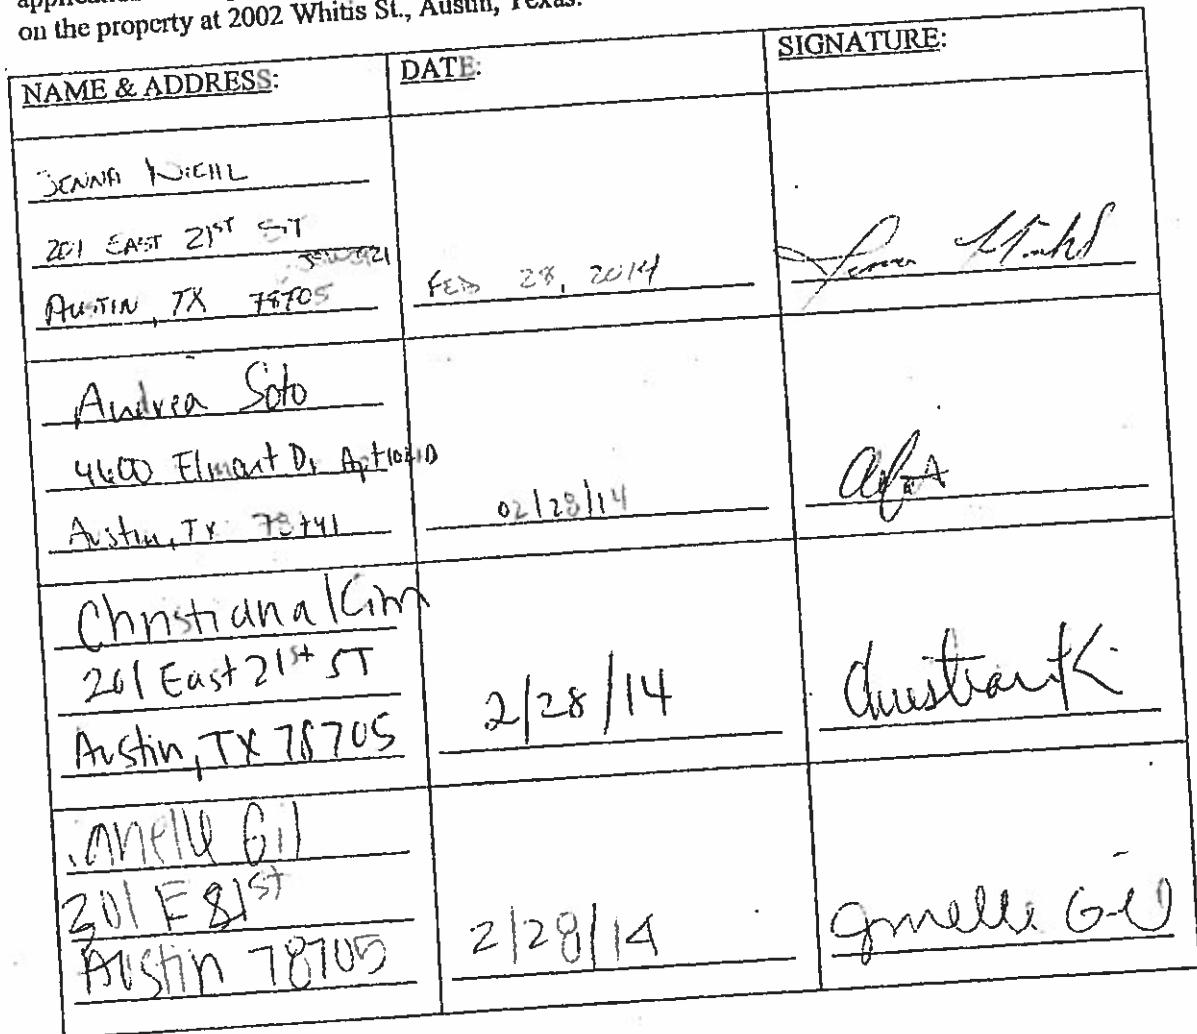 on the property at 2002 Whitis St., Austin, Texas.
NAME & ADDRESS: DATE: SIGNATURE:
JENNA
201 EAST 21ST ST
AUSTIN, TX 78705 FEB 28, 2014
Andrea Soto
4600 Elmont Dr Apt
Austin, Tx 78741 02/28/14
Christiana Kim
201 East 21st ST
Austin, TX 78705 2/28/14
Gil
201 E 21st
Austin 78705 2/28/14 Gil